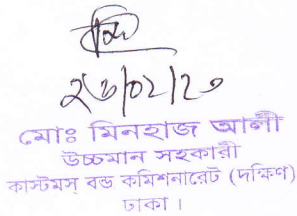 ২৬/০২/২৩
মোঃ মিনহাজ আলী
উচ্চমান সহকারী
কাস্টমস্ বন্ড কমিশনারেট (দক্ষিণ)
ঢাকা।